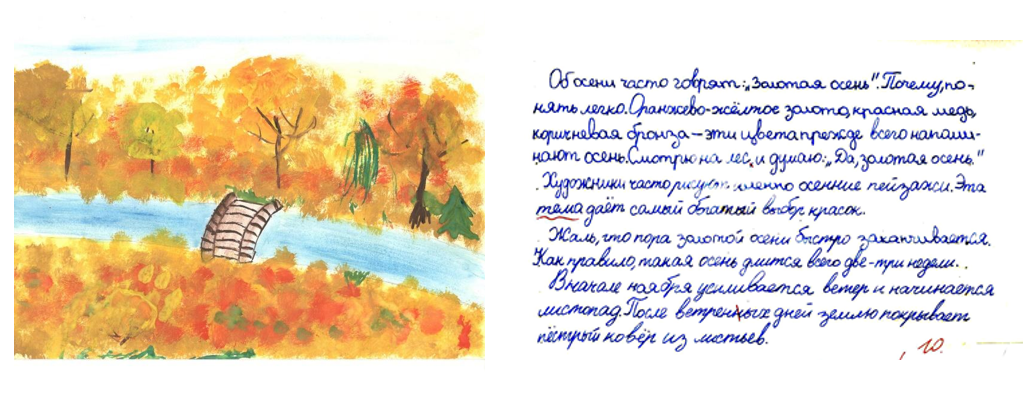 Об осени часто говрят: „Золотая осень". Почему, по-
нять легко. Оранжево-жёлтое золото, красная медь,
коричневая бронза – эти цвета прежде всего напоми-
нают осень. Смотрю на лес, и думаю: „Да, золотая осень."
Художники часто рисуют именно осенние пейзажи. Эта
тема даёт самый обгатый выбор красок.
Жаль, что пора золотой осени быстро заканчивается.
Как правило, такая осень длится всего две-три недели.
Вначале ноября усиливается ветер и начинается
листопад. После ветренных дней землю покрывает
пёстрый ковёр из листьев.
10.